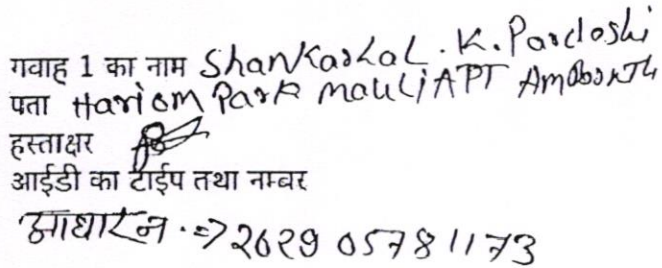 गवाह 1 का नाम Shankarlal . K. Pardoshi
पता Hariom Park mauli APT Ambarnth
हस्ताक्षर
आईडी का टाईप तथा नम्बर
आधारन .=> 2629 0578 1173